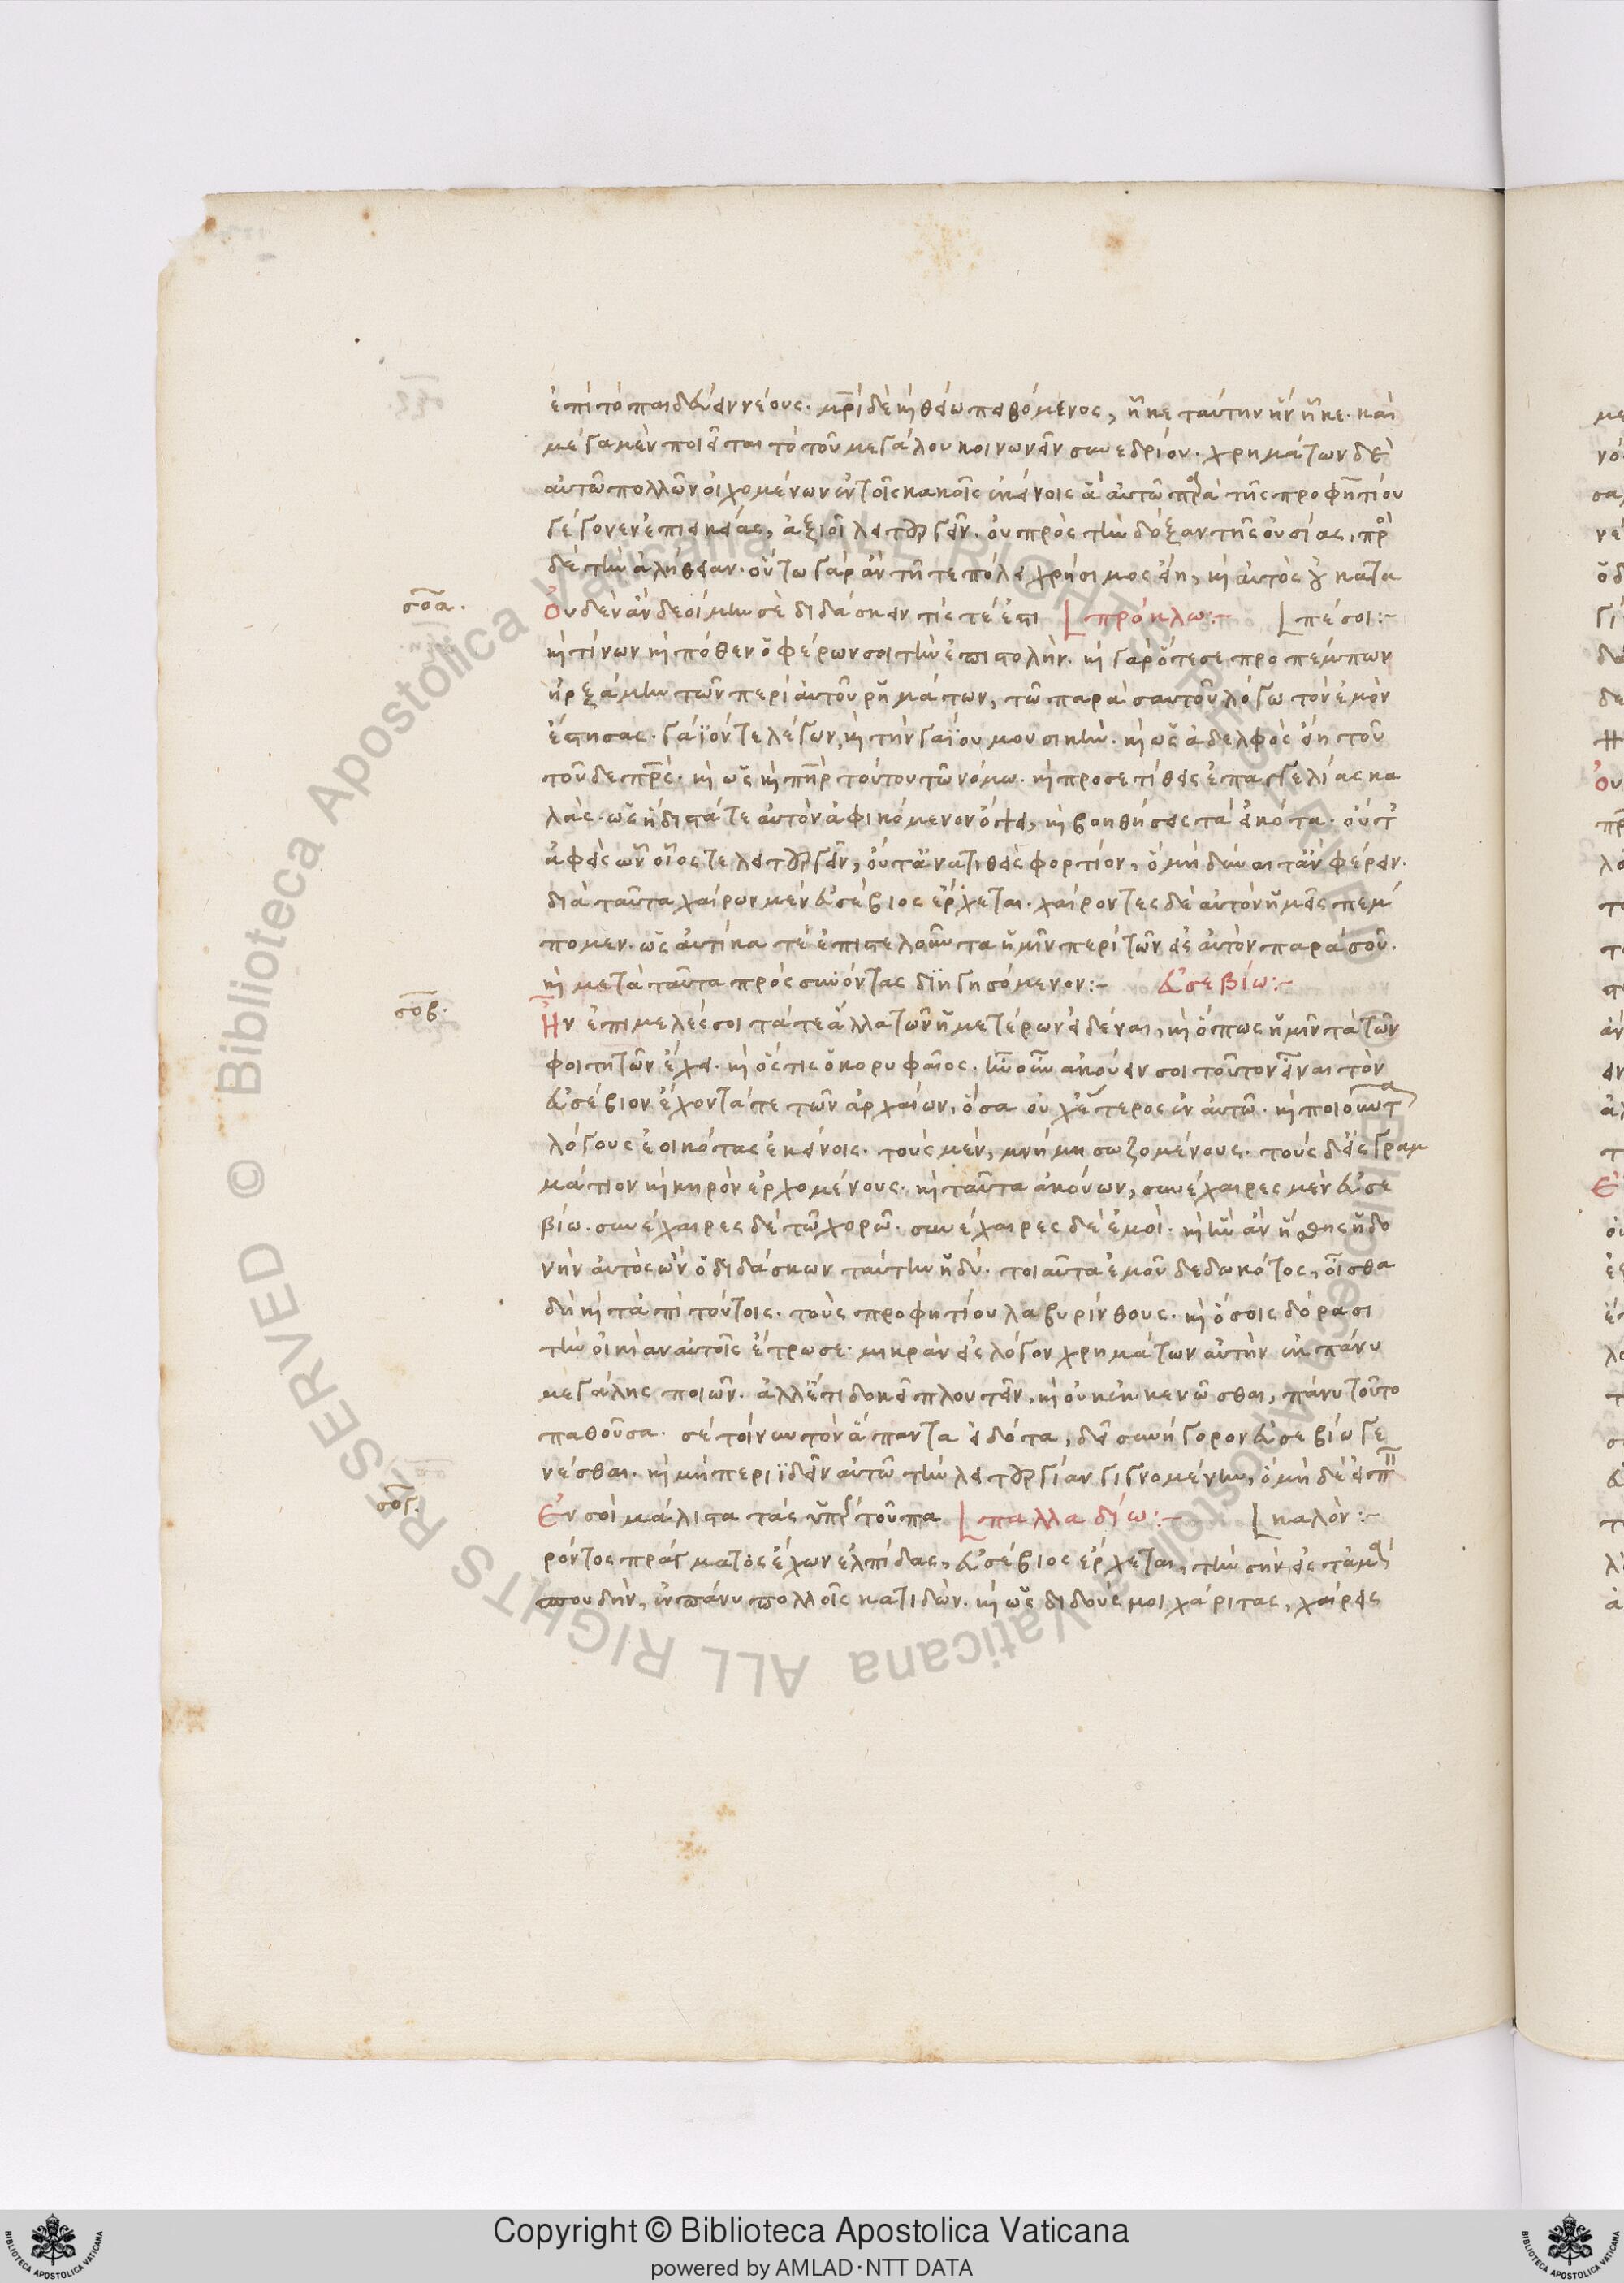 ἐπὶ τὸ παιδεύειν νέους. μητρὶ δὲ καὶ θείω πειθόμενος, ἧκε ταύτην ἣν ἧκε. καὶ
μέγα μὲν ποιεῖται τὸ τοῦ μεγάλου κοινωνεῖν συνεδρίου. χρημάτων δὲ
αὐτῶ πολλῶν οἰχομένων ἐν τοῖς κακοῖς ἐκείνοις ἃ αὐτῶ παρὰ τῆς προφητίου
γέγονεν ἐπιεικείας, ἀξιοῖ λειτουργεῖν. οὐ πρὸς τὴν δόξαν τῆς οὐσίας, πρὸς
δὲ τὴν ἀλήθειαν. οὕτω γὰρ ἂν τῆ τε πόλει χρήσιμος εἴη, καὶ αὐτὸς οὐ κατα
σοα.
Οὐδὲν ἂν δεοίμην σὲ διδάσκειν τίς τέ ἐστι [πρόκλω:- [πέσοι:-
καὶ τίνων καὶ πόθεν ὁ φέρων σοι τὴν ἐπιστολήν. καὶ γὰρ ὅτε σε προπέμπων
ἠρξάμην τῶν περὶ αὐτοῦ ῥημάτων, τῶ παρὰ σαυτοῦ λόγω τὸν ἐμὸν
ἔστησας. γάϊόν τε λέγων, καὶ τὴν γαΐου μουσικήν. καὶ ὡς ἀδελφὸς εἴη τοῦ
τοῦδε πατρός. καὶ ὡς καὶ πατὴρ τούτου τῶ νόμω. καὶ προσετίθεις ἐπαγγελίας κα
λάς. ὡς ἥδιστά τε αὐτὸν ἀφικόμενον ὄψει, καὶ βοηθήσεις τὰ εἰκότα. οὔτ
ἀφεὶς ὧν οἷός τε λειτουργεῖν, οὔτ ἀνατιθεὶς φορτίον, ὃ μὴ δύναιτ ἂν φέρειν.
διὰ ταῦτα χαίρων μὲν εὐσέβιος ἔρχεται. χαίροντες δὲ αὐτὸν ἡμεῖς πέμ
πομεν. ὡς αὐτίκα τε ἐπιστελοῦντα ἡμῖν περὶ τῶν εἰς αὐτὸν παρὰ σοῦ.
καὶ μετὰ ταῦτα πρὸς συνόντας διηγησόμενον:- εὐσεβίω:-
σοβ.
Ἦν ἐπιμελές σοι τά τε ἄλλα τῶν ἡμετέρων εἰδέναι, καὶ ὅπως ἡμῖν τὰ τῶν
φοιτητῶν ἔχει. καὶ ὅστις ὁ κορυφαῖος. ἦν οὖν ἀκούειν σοι τοῦτον εἶναι τὸν
εὐσέβιον ἔχοντά τε τῶν ἀρχαίων, ὅσα οὐχ ἕτερος ἐν αὐτῶ. καὶ ποιοῦντα
λόγους ἐοικότας ἐκείνοις. τοὺς μὲν, μνήμη σωζομένους. τοὺς δ εἰς γραμ
μάτιον καὶ κηρὸν ἐρχομένους. καὶ ταῦτα ἀκούων, συνέχαιρες μὲν εὐσε
βίω. συνέχαιρες δὲ τῶ χορῶ. συνέχαιρες δὲ ἐμοί. καὶ ἣν ἂν ἥσθης ἡδο
νὴν αὐτὸς ὢν ὁ διδάσκων ταύτην ἥδου. τοιαῦτα ἐμοῦ δεδωκότος, οἶσθα
δὴ καὶ τἀπὶ τούτοις. τοὺς προφητίου λαβυρίνθους. καὶ ὅσοις δόρασι
τὴν οἰκίαν αὐτοῖς ἔτρωσε. μικρὰν εἰς λόγον χρημάτων αὐτὴν ἐκ πάνυ
μεγάλης ποιῶν. ἀλλ ἔτι δοκεῖ πλουτεῖν, καὶ οὐκ ἐκκενῶσθαι, πάνυ τοῦτο
παθοῦσα. σὲ τοίνυν τὸν ἅπαντα εἰδότα, δεῖ συνήγορον εὐσεβίω γε
νέσθαι. καὶ μὴ περιϊδεῖν αὐτῶ τὴν λειτουργίαν γιγνομένην, ὃ μηδὲ εἰπεῖν
σογ.
Ἐν σοὶ μάλιστα τὰς ὑπὲρ τοῦ πα [παλλαδίω:- [καλόν:-
ρόντος πράγματος ἔχων ἐλπίδας, εὐσέβιος ἔρχεται, τὴν σὴν εἰς τἀμὰ
σπουδὴν, ἐν πάνυ πολλοῖς κατιδών. καὶ ὡς διδούς μοι χάριτας, χαίρεις